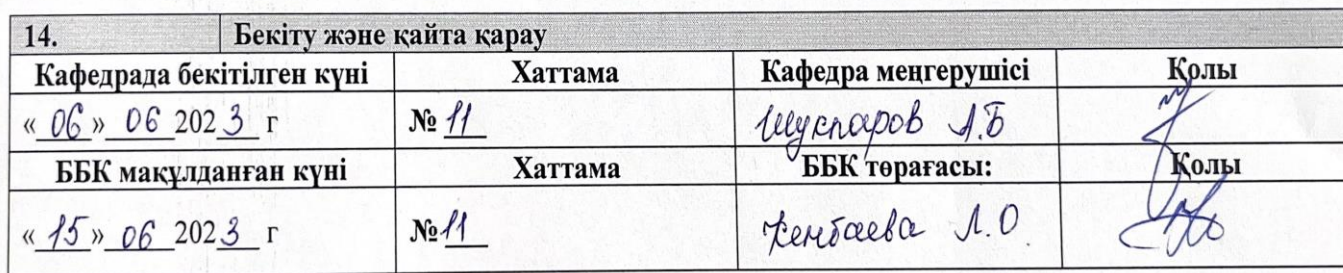 14. Бекіту және қайта қарау
Кафедрада бекітілген күні Хаттама Кафедра меңгерушісі Қолы
« 06 » 06 2023 г № 11 Шукпаров А.Б
ББК мақұлданған күні Хаттама ББК төрағасы: Қолы
« 15 » 06 2023 г №11 Кенбаева Л.О.